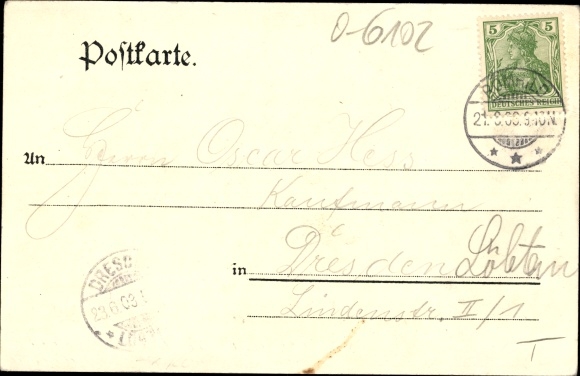 0-6102
Postkarte.
5 5
DEUTSCHES REICH
21.6.03.
An Herrn Oscar Hess
Kaufmann
in Dresden Löbtau
Lindenstr. II/1
DRESD
23.6.03
T